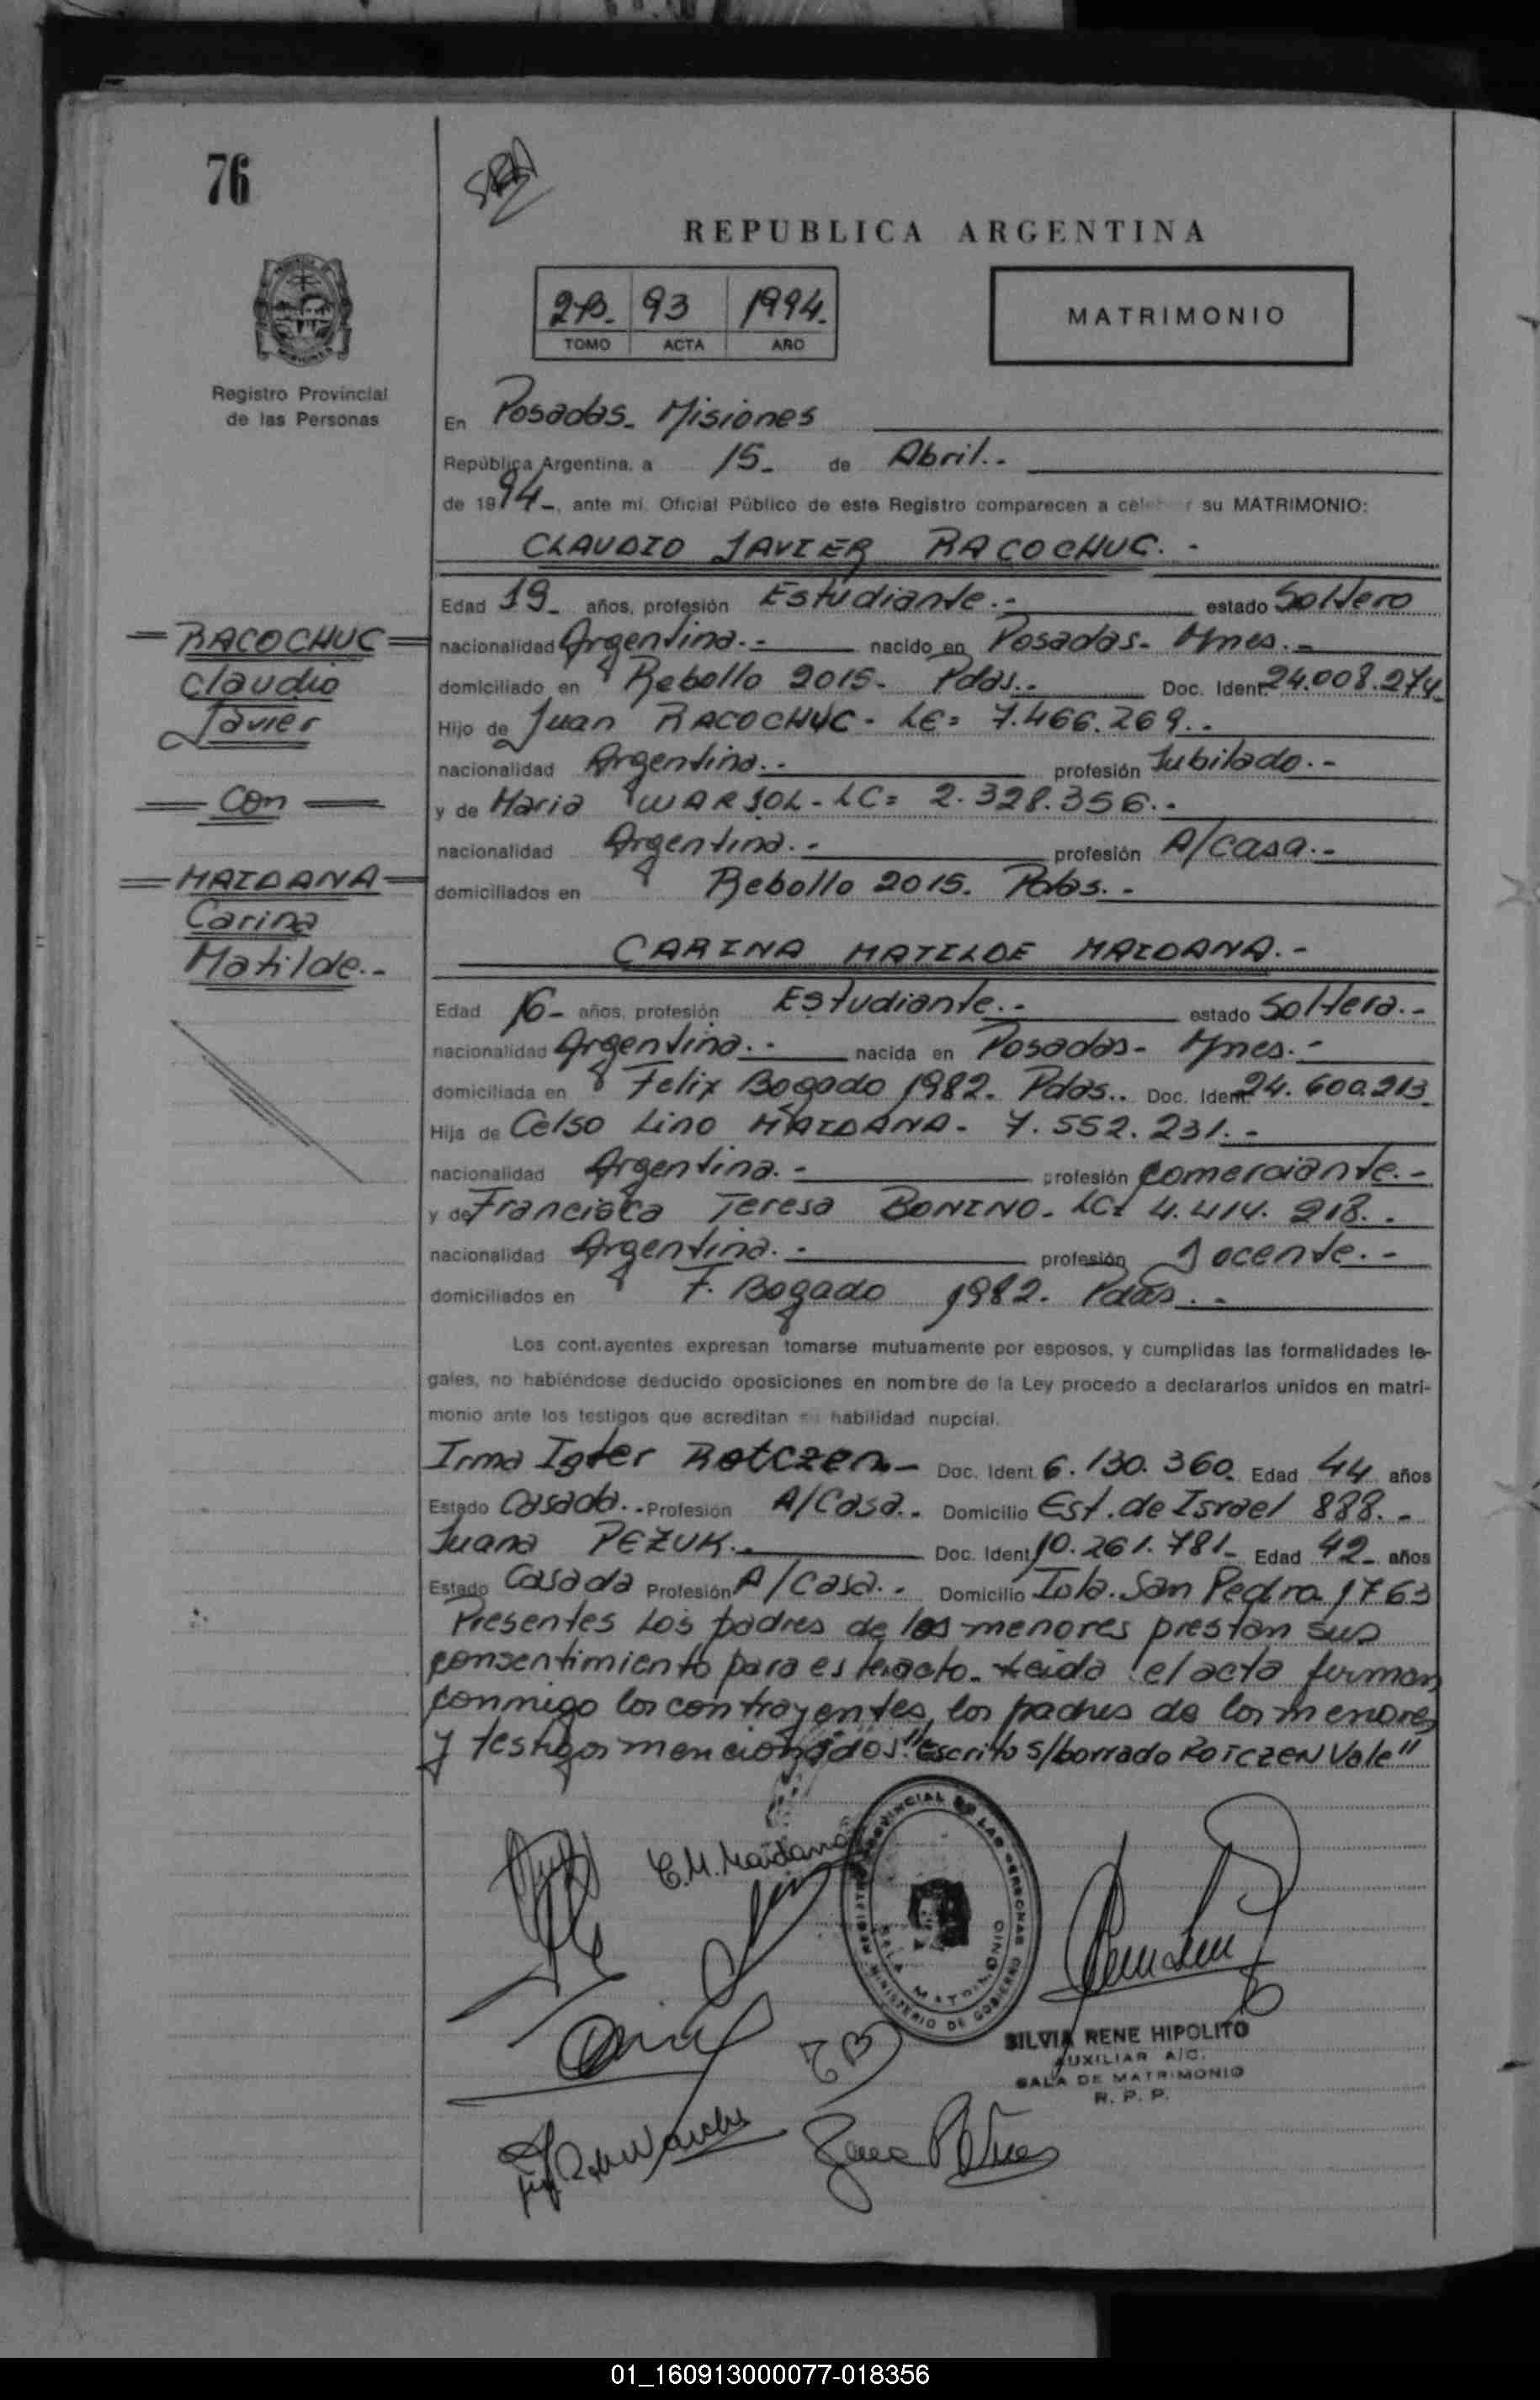 76
REPUBLICA ARGENTINA
2B. 93 1994.
TOMO ACTA AÑO
MATRIMONIO
Registro Provincial
de las Personas
En Posadas. Misiones
República Argentina, a 15. de Abril.-
de 1994-, ante mi, Oficial Público de este Registro comparecen a celebrar su MATRIMONIO:
CLAUDIO JAVIER RACOCHUC.-
Edad 19- años, profesión Estudiante.- estado Soltero
nacionalidad Argentina.- nacido en Posadas- Mnes.-
domiciliado en Rebollo 2015- Pdas.- Doc. Ident. 24.008.274
Hijo de Juan RACOCHUC- LE= 7.466.269.-
nacionalidad Argentina.- profesión Jubilado.-
y de Maria WARSOL- LC= 2.328.356.-
nacionalidad Argentina.- profesión A/casa.-
domiciliados en Rebollo 2015. Pdas.-
RACOCHUC
Claudio
Javier
Con
MAIDANA
Carina
Matilde.-
CARINA MATILDE MAIDANA.-
Edad 16- años, profesión Estudiante.- estado Soltera.-
nacionalidad Argentina.- nacida en Posadas- Mnes.-
domiciliada en Felix Bogado 1982. Pdas.. Doc. Ident. 24.600.213
Hija de Celso Lino MAIDANA- 7.552.231.-
nacionalidad Argentina.- profesión comerciante.-
y de Francisca Teresa BONINO- LC: 4.414.218.-
nacionalidad Argentina.- profesión Docente.-
domiciliados en F. Bogado 1982. Pdas.-
Los contrayentes expresan tomarse mutuamente por esposos, y cumplidas las formalidades le-
gales, no habiéndose deducido oposiciones en nombre de la Ley procedo a declararlos unidos en matri-
monio ante los testigos que acreditan su habilidad nupcial.
Irma Ester ROTCZEN.- Doc. Ident. 6.130.360. Edad 44 años
Estado Casada.- Profesión A/Casa.. Domicilio Est. de Israel 888.-
Juana PEZUK.- Doc. Ident. 10.261.781- Edad 42- años
Estado Casada Profesión A/Casa.. Domicilio Tbta. San Pedro 1763
Presentes los padres de los menores prestan sus
consentimiento para este acto. Leida el acta firman
conmigo los contrayentes, los padres de los menores
y testigos mencionados. "Escrito s/borrado ROTCZEN Vale"
C.M. Maidana
REGISTRO PROVINCIAL DE LAS PERSONAS
SALA MATRIMONIO
MINISTERIO DE GOBIERNO
SILVIA RENE HIPOLITO
AUXILIAR A/C.
SALA DE MATRIMONIO
R. P. P.
01_160913000077-018356